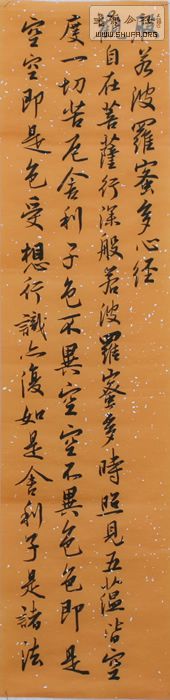 若波羅蜜多心經
自在菩薩行深般若波羅蜜多時照見五蘊皆空
度一切苦厄舍利子色不異空空不異色色即是
空空即是色受想行識亦復如是舍利子是諸法
WWW.SHUFA.ORG